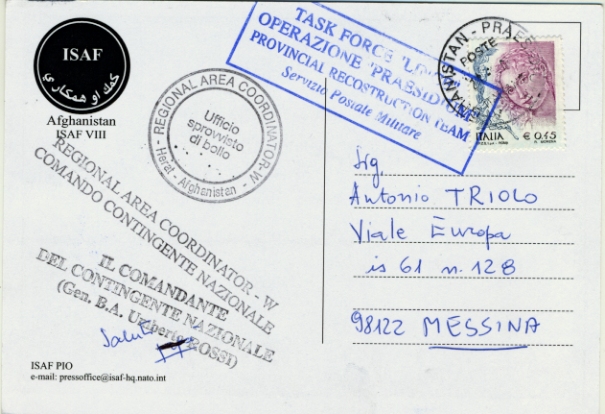 ISAF
کمک او همکاری
Afghanistan
ISAF VIII
REGIONAL AREA COORDINATOR-W
Ufficio
sprovvisto
di bollo
Herat - Afghanistan
REGIONAL AREA COORDINATOR - W
COMANDO CONTINGENTE NAZIONALE
IL COMANDANTE
DEL CONTINGENTE NAZIONALE
(Gen. B.A. Umberto ROSSI)
Saluti
ISAF PIO
e-mail: pressoffice@isaf-hq.nato.int
TASK FORCE
OPERAZIONE "PRAESIDIUM"
PROVINCIAL RECOSTRUCTION TEAM
Servizio Postale Militare
POSTE
ITALIA € 0,45
Sig.
Antonio TRIOLO
Viale Europa
is 61 n. 128
98122 MESSINA